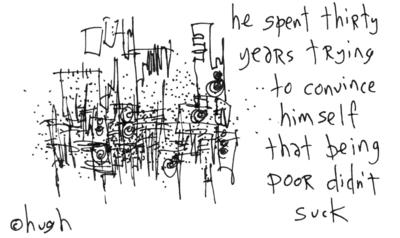 he spent thirty
years trying
to convince
himself
that being
POOR didn't
suck
©hugh